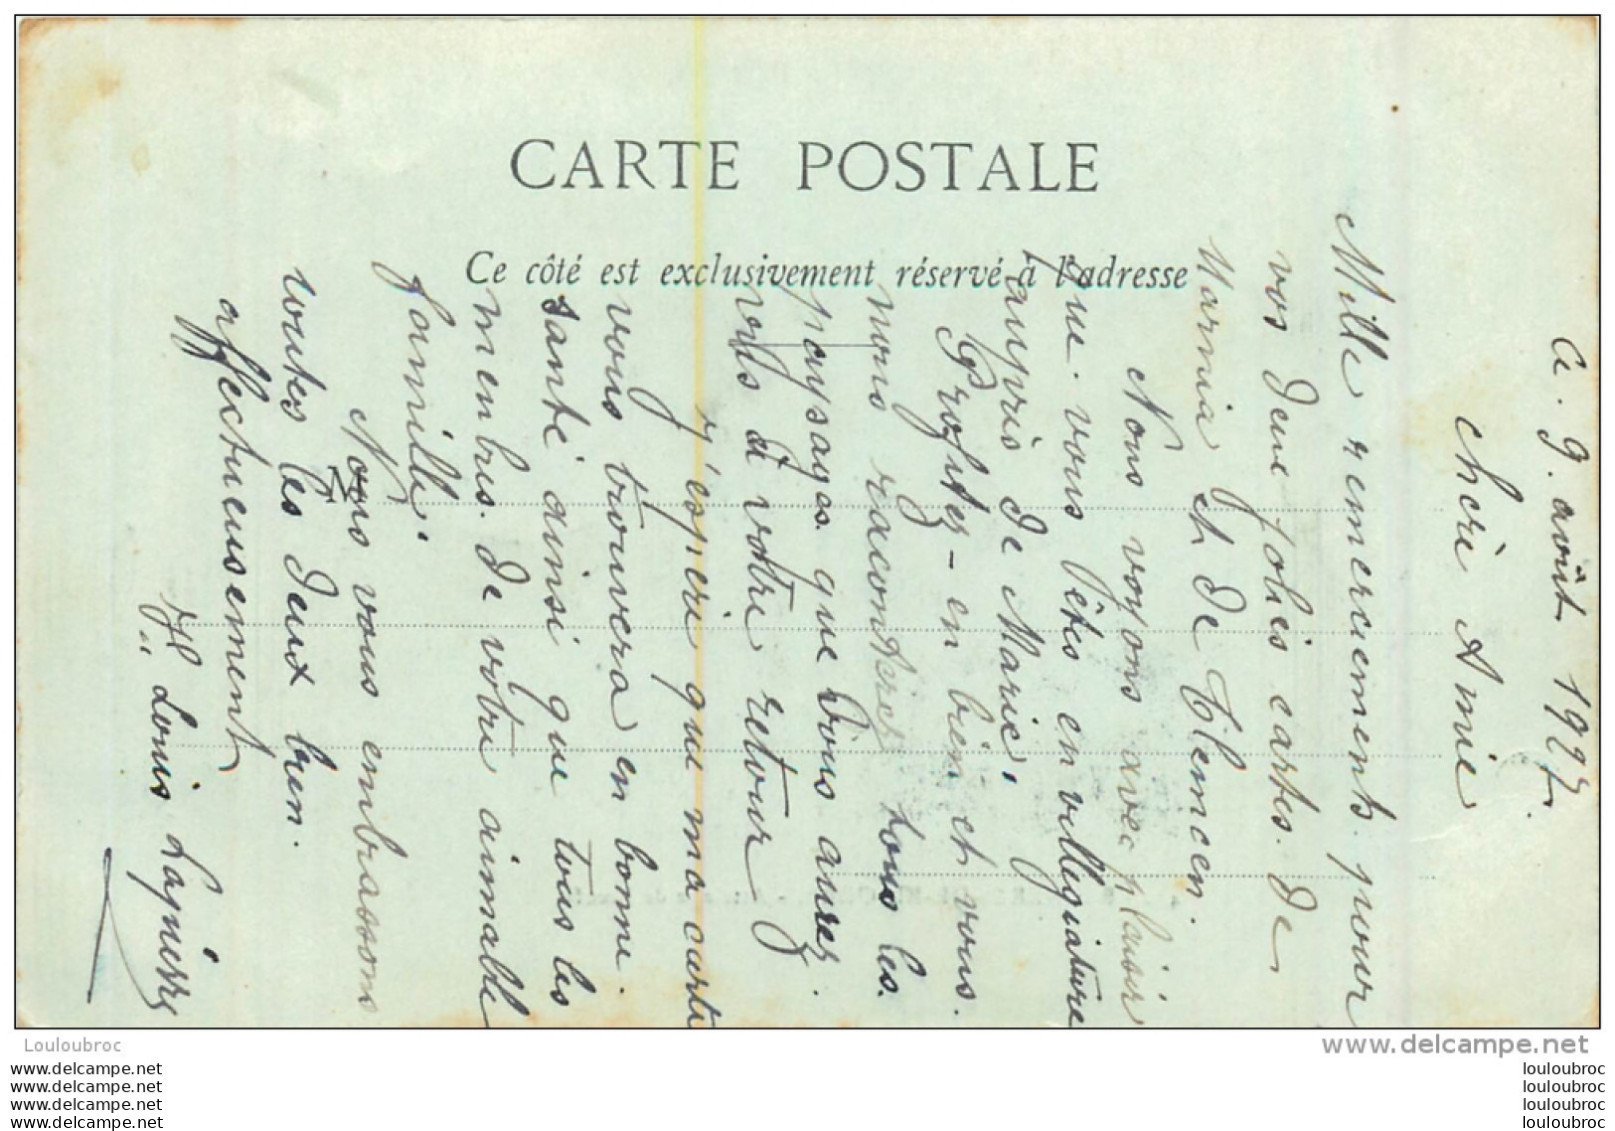 CARTE POSTALE
Ce côté est exclusivement réservé à l'adresse
Ce. 9. août 1907.
chère Amie
Mille remerciements pour
vos deux jolies cartes. de
Marnia et de Tlemcen.
Nous voyons avec plaisir
que. vous êtes en villégiature
auprès de Marie,
Profitez-en bien et vous.
nous raconterez tous les.
paysages que vous aurez.
vus à votre retour
J'espère que ma carte
vous trouvera en bonne.
santé ainsi que tous les
membres. de votre aimable
famille,
Nous vous embrassons
toutes les deux bien.
affectueusement
Louis
N
Louloubroc
www.delcampe.net
www.delcampe.net
www.delcampe.net
www.delcampe.net
www.delcampe.net
louloubroc
louloubroc
louloubroc
louloubroc